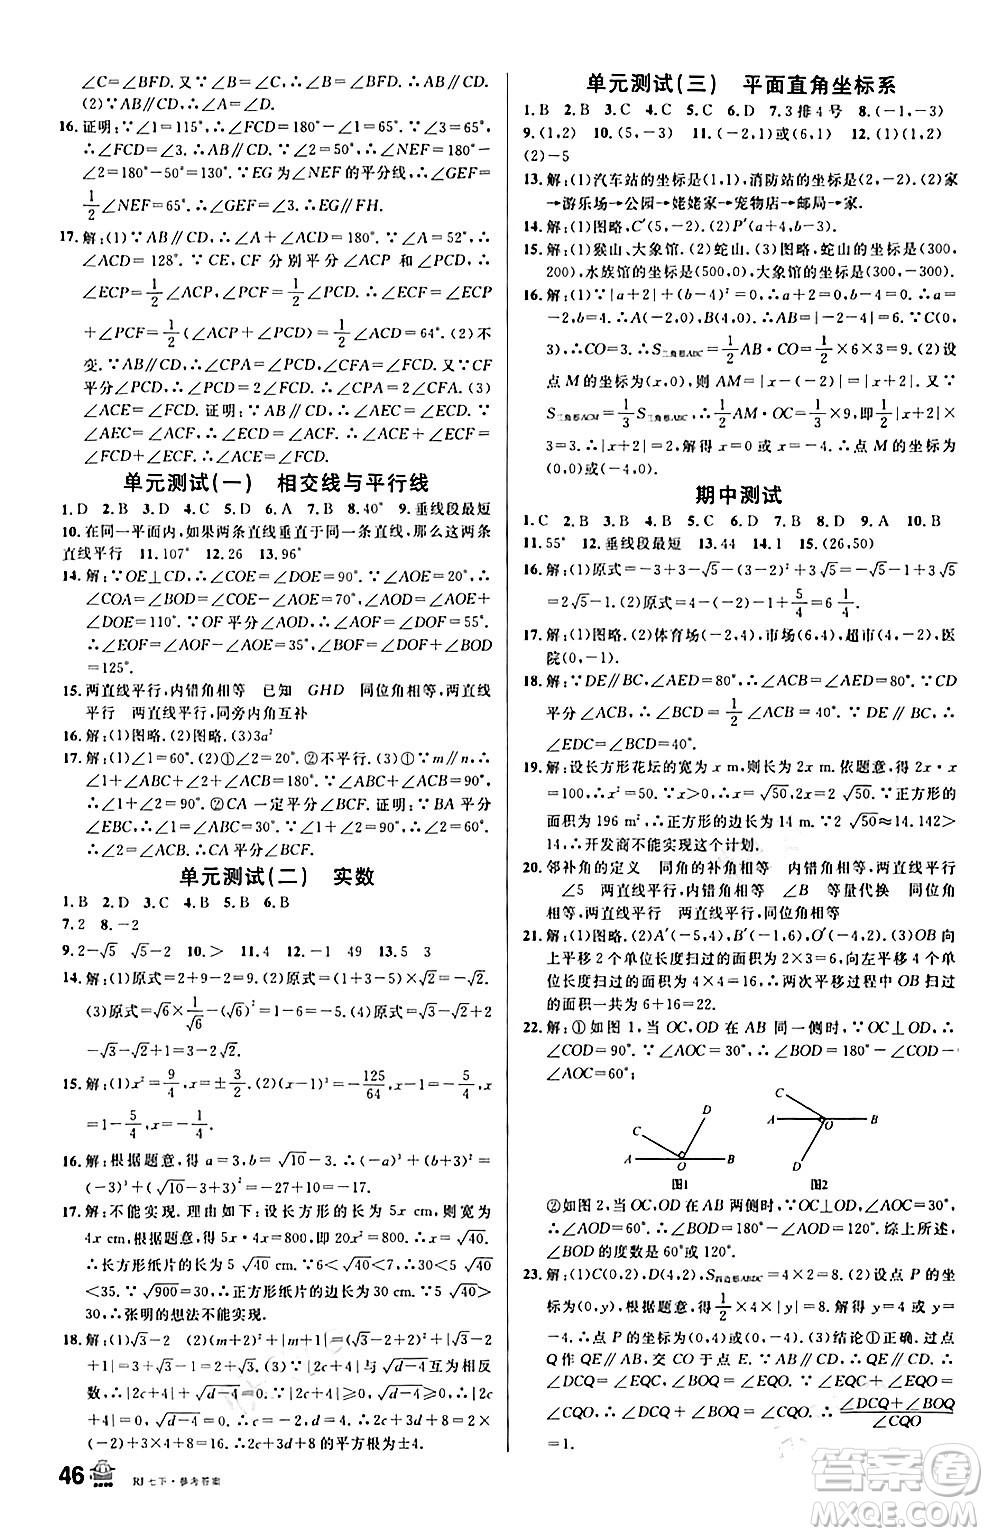 ∠C=∠BFD.又∵∠B=∠C,∴∠B=∠BFD.∴AB∥CD.
(2)∵AB∥CD,∴∠A=∠D.
16.证明:∵∠1=115°,∴∠FCD=180°-∠1=65°.∵∠3=65°,
∴∠FCD=∠3.∴AB∥CD.∵∠2=50°,∴∠NEF=180°-∠2
=180°-50°=130°.∵EG为∠NEF的平分线,∴∠GEF=
1/2∠NEF=65°.∴∠GEF=∠3.∴EG∥FH.
17.解:(1)∵AB∥CD,∴∠A+∠ACD=180°.∵∠A=52°,∴
∠ACD=128°.∵CE,CF 分别平分∠ACP 和∠PCD,∴
∠ECP=1/2∠ACP,∠PCF=1/2∠PCD.∴∠ECF=∠ECP
+∠PCF=1/2(∠ACP+∠PCD)=1/2∠ACD=64°.(2)不
变.∵AB∥CD,∴∠CPA=∠PCD,∠CFA=∠FCD.又∵CF
平分∠PCD,∴∠PCD=2∠FCD.∴∠CPA=2∠CFA.(3)
∠ACE=∠FCD.证明:∵AB∥CD,∴∠AEC=∠ECD.
∵∠AEC=∠ACF,∴∠ECD=∠ACF.∴∠ACF-∠ECF
=∠ECD-∠ECF.∴∠ACE=∠FCD.
单元测试(一) 相交线与平行线
1.D 2.B 3.D 4.C 5.A 6.D 7.B 8.40° 9.垂线段最短
10.在同一平面内,如果两条直线垂直于同一条直线,那么这两条
直线平行 11.107° 12.26 13.96°
14.解:∵OE⊥CD,∴∠COE=∠DOE=90°.∵∠AOE=20°,∴
∠COA=∠BOD=∠COE-∠AOE=70°,∠AOD=∠AOE+
∠DOE=110°.∵OF平分∠AOD,∴∠AOF=∠DOF=55°.
∴∠EOF=∠AOF-∠AOE=35°.∴∠BOF=∠DOF+∠BOD
=125°.
15.两直线平行,内错角相等 已知 GHD 同位角相等,两直线
平行 两直线平行,同旁内角互补
16.解:(1)图略.(2)图略.(3)3a²
17.解:(1)∠1=60°.(2)①∠2=30°.②不平行.(3)①∵m∥n,∴
∠1+∠ABC+∠2=180°.∵∠ABC=2∠2,∠1=90°,
∴90°+2∠2+∠2=180°.②CA一定平分∠BCF.证明:∵BA平分
∠EBC,∴∠ABC=∠1=60°.∴∠2=∠BCF=60°.
∵∠ACB=30°,∴CA平分∠BCF.
单元测试(二) 实数
1.B 2.D 3.C 4.A 5.B 6.B
7.2 8.-2
9.2-√5 √5-2 10.> 11.4 12.-1 49 13.5 3
14.解:(1)原式=2+9-2=9.(2)原式=(1+3-5)×√2=-√2.
(3)原式=√6×1/√6-(√6)²=1-6=-5.(4)原式=√3-√2+2
-2-√3=-√2.
15.解:(1)x²=9/4,x=±3/2.(2)(x-1)³=-125/64,x-1=-5/4,x
=1-5/4,x=-1/4.
16.解:根据题意,得a=3,b=√10-3.∴(-a)³+(b+3)²=
(-3)³+(√10-3+3)²=-27+10=-17.
17.解:不能实现.理由如下:设长方形的长为5x cm,则宽为
4x cm,根据题意,得5x·4x=800,即20x²=800.∴x=√40.
∴长方形纸片的长为5√40 cm.∵6<√40<7,∴30<5√40<
35.∵√900=30,∴正方形纸片的边长为30 cm.∵5√40>
30,∴张明的想法不能实现.
18.解:(1)√3-2 (2)(m+2)²+|m-1|=(1-√3+2)²+
|1-√3-1|=12-5√3.(3)∵|2c+4|与√d-4互为相反
数,∴|2c+4|+√d-4=0.∵|2c+4|≥0,√d-4≥0,∴|2c+
4|=0,√d-4=0.∴c=-2,d=4.∴2c+3d+8=2×(-2)+
3×4+8=16.∵16的平方根为±4,∴2c+3d+8的平方根为±4.
单元测试(三) 平面直角坐标系
1.B 2.B 3.C 4.C 5.C 6.D 7.3排4号 8.(-1,-3)
9.(1,2) 10.(5,-3) 11.(-2,1)或(6,1) 12.(1)(1,2)
(2)-5
13.解:(1)汽车站的坐标是(1,1),消防站的坐标是(2,-2).(2)家
→游乐场→公园→姥姥家→宠物店→邮局→家.
14.解:(1)图略,C′(5,-2).(2)P′(a+4,b-3).
15.解:(1)猴山、大象馆.(2)蛇山.(3)图略,蛇山的坐标是(300,
200),水族馆的坐标是(500,0),大象馆的坐标是(300,-300).
16.解:(1)∵|a+2|+(b-4)²=0,∴a+2=0,b-4=0.∴a=
-2,b=4.∴A(-2,0),B(4,0).∴AB=|-2-4|=6.∵C(0,
3),∴CO=3.∴S三角形ABC=1/2AB·CO=1/2×6×3=9.(2)设
点M的坐标为(x,0),则AM=|x-(-2)|=|x+2|.又∵
S三角形ACM=1/3S三角形ABC,∴1/2AM·OC=1/3×9,即1/2|x+2|×
3=3.∴|x+2|=2,解得x=0或x=-4.∴点M的坐标为
(0,0)或(-4,0).
期中测试
1.C 2.B 3.B 4.D 5.B 6.B 7.C 8.D 9.A 10.B
11.55° 12.垂线段最短 13.44 14.1 15.(26,50)
16.解:(1)原式=-3+3-√5-(3-2√5)=-√5-3+2√5
=√5-3.(2)原式=(-4)-2×(-2)-1+5/4=1/4.
17.解:(1)图略.(2)体育场(-2,4),市场(6,4),超市(4,-2),医
院(0,-1).
18.解:∵DE∥BC,∠AED=80°,∴∠ACB=∠AED=80°.∵CD
平分∠ACB,∴∠BCD=1/2∠ACB=40°.∵DE∥BC,∴
∠EDC=∠BCD=40°.
19.解:设长方形花坛的宽为x m,则长为2x m.依题意,得2x·x
=100,∴x²=50.∵x>0,∴x=√50,2x=2√50.∵正方形的
面积为196 m²,∴正方形的边长为14 m.∵2√50≈14.142>
14,∴开发商不能实现这个计划.
20.邻补角的定义 同角的补角相等 内错角相等,两直线平行
∠5 两直线平行,内错角相等 ∠B 等量代换 同位角
相等,两直线平行 两直线平行,同位角相等
21.解:(1)图略.(2)A′(-5,4),B′(-1,6),O′(-4,2).(3)OB向
上平移2个单位长度扫过的面积=2×3=6,再向左平移4个
单位长度扫过的面积=4×4=16,∴两次平移过程中OB扫过
的面积一共为6+16=22.
22.解:①如图1,当OC,OD在AB同一侧时,∵OC⊥OD,∴
∠COD=90°.∵∠AOC=30°,∴∠BOD=180°-∠COD-
∠AOC=60°;
C D A O B 图1
C A O B D 图2
②如图2,当OC,OD在AB两侧时,∵OC⊥OD,∠AOC=30°,
∴∠AOD=60°.∴∠BOD=180°-∠AOD=120°.综上所述,
∠BOD的度数是60°或120°.
23.解:(1)C(0,2),D(4,2),S四边形ABDC=4×2=8.(2)设点P的坐
标为(0,y),根据题意,得1/2×4×|y|=8.解得y=4或y=
-4.∴点P的坐标为(0,4)或(0,-4).(3)结论①正确.过点
Q作QE∥AB,交CO于点E.∵AB∥CD,∴QE∥AB∥CD.
∴∠DCQ=∠EQC,∠BOQ=∠EQO.∵∠EQC+∠EQO=
∠CQO,∴∠DCQ+∠BOQ=∠CQO.∴(∠DCQ+∠BOQ)/∠CQO
=1.
46 RJ 七下·参考答案